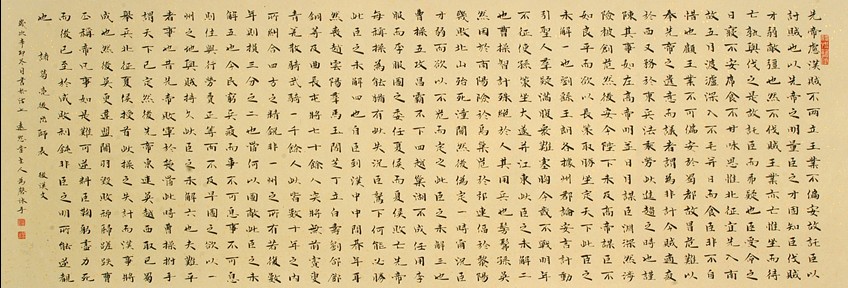 先帝慮漢賊不兩立王業不偏安故託臣以
討賊也以先帝之明量臣之才固知臣伐賊
才弱敵彊也然不伐賊王業亦亡惟坐而待
亡孰與伐之是故託臣而弗疑也臣受命之
日寢不安席食不甘味思惟北征宜先入南
故五月渡瀘深入不毛并日而食臣非不自
惜也顧王業不可偏安於蜀都故冒危難以
奉先帝之遺意而議者謂為非計今賊適疲
於西又務於東兵法乘勞此進趨之時也謹
陳其事如左高帝明並日月謀臣淵深然涉
險被創危然後安今陛下未及高帝謀臣不
如良平而欲以長策取勝坐定天下此臣之
未解一也劉繇王朗各據州郡論安言計動
引聖人羣疑滿腹眾難塞胸今歲不戰明年
不征使孫策坐大遂并江東此臣之未解二
也曹操智計殊絕於人其用兵也髣髴孫吳
然困於南陽險於烏巢危於祁連偪於黎陽
幾敗北山殆死潼關然後偽定一時爾況臣
才弱而欲以不危而定之此臣之未解三也
曹操五攻昌霸不下四越巢湖不成任用李
服而李服圖之委任夏侯而夏侯敗亡先帝
每稱操為能猶有此失況臣駑下何能必勝
此臣之未解四也自臣到漢中中間朞年耳
然喪趙雲陽羣馬玉閻芝丁立白壽劉郃鄧
銅等及曲長屯將七十餘人突將無前賨叟
青羌散騎武騎一千餘人此皆數十年之內
所糾合四方之精銳非一州之所有若復數
年則損三分之二也當何以圖敵此臣之未
解五也今民窮兵疲而事不可息事不可息
則住與行勞費正等而不及早圖之欲以一
州之地與賊持久此臣之未解六也夫難平
者事也昔先帝敗軍於楚當此時曹操拊手
謂天下已定然後先帝東連吳越西取巴蜀
舉兵北征夏侯授首此操之失計而漢事將
成也然後吳更違盟關羽毀敗秭歸蹉跌曹
丕稱帝凡事如是難可逆料臣鞠躬盡力死
而後已至於成敗利鈍非臣之明所能逆覩
也
諸葛亮後出師表 後漢文
歲次辛卯冬月書於 主人馬 休手